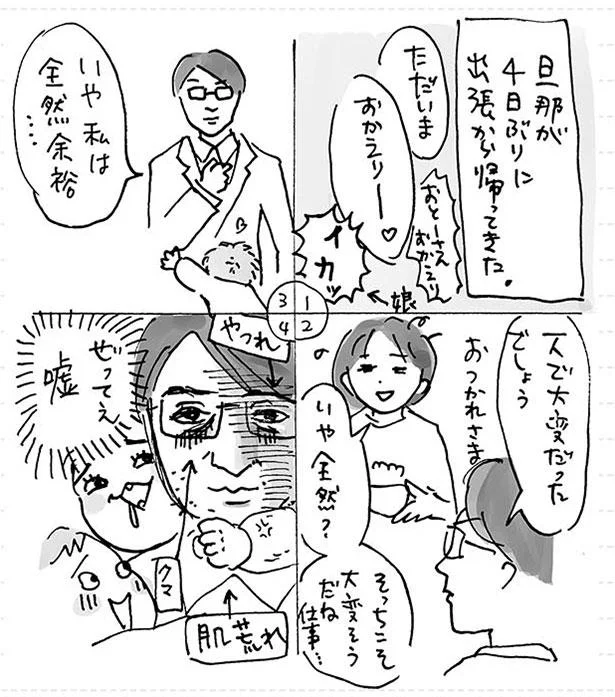 旦那が
4日ぶりに
出張から帰ってきた。
ただいま
おかえりー♡
おとーさん
おかえり
イカッ
←娘
1
2
3
4
一人で大変だった
でしょう
おつかれさま
いや全然?
そっちこそ
大変そう
だね
仕事…
いや私は
全然余裕
…
やつれ
ぜってぇ
嘘
クマ
肌荒れ